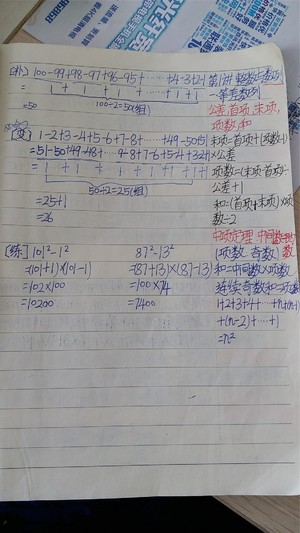 [补] 100-99+98-97+96-95+……+4-3+2-1
= 1 + 1 + 1 +……+ 1 + 1
100÷2=50(组)
=50
[变] 1-2+3-4+5-6+7-8+……+49-50+51
=51-50+49-48+……9-8+7-6+5-4+3-2+1
= 1 + 1 + 1 + 1 + 1 + 1 + 1
50÷2=25(组)
=25+1
=26
[练] 101²-1²
=(101+1)×(101-1)
=102×100
=10200
87²-13²
=(87+13)×(87-13)
=100×74
=7400
第1讲 整数与数列
一.等差数列
公差,首项,末项,
项数,和
末项=首项+(项数-1)
×公差
项数=(末项-首项)÷
公差+1
和=(首项+末项)×项
数÷2
中项定理 中间数=
(项数 奇数)
和=中间数×项数
连续奇数和=项数
1+2+3+4+…+n+(n-1)
+(n-2)+……+1
=n²